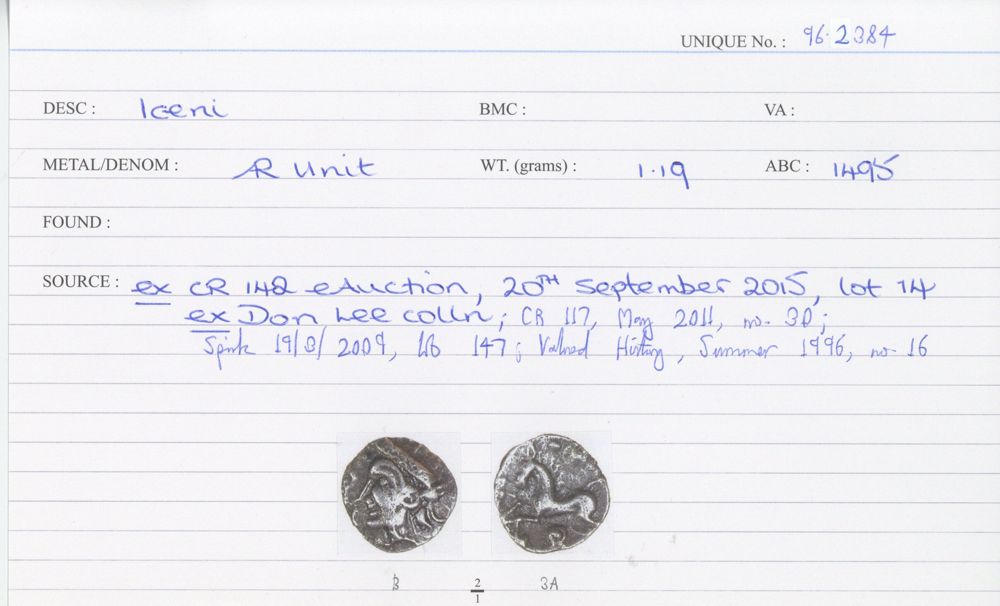 UNIQUE No. : 96.2384
DESC : Iceni BMC : VA :
METAL/DENOM : AR Unit WT. (grams) : 1.19 ABC : 1495
FOUND :
SOURCE : ex CR 142 eAuction, 20TH September 2015, lot 14
ex Don Lee colln; CR 117, May 2011, no. 30;
Spink 19/3/2009, lot 147; Valued History, Summer 1996, no. 16
B 2/1 3A